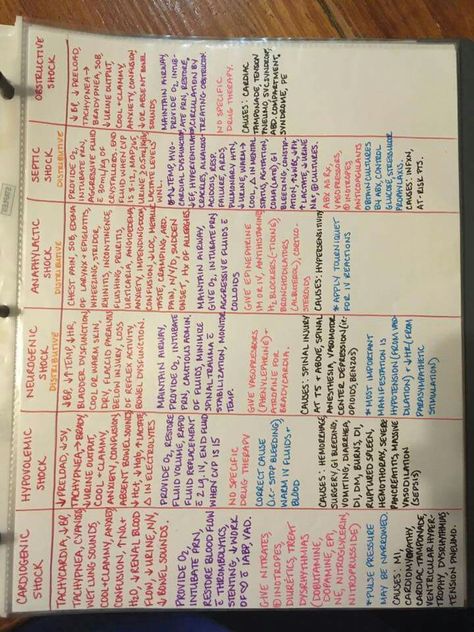 CARDIOGENIC
SHOCK
TACHYCARDIA, ↓BP,
TACHYPNEA, CYANOSIS,
WET LUNG SOUNDS
COOL + CLAMMY, ANXIETY,
CONFUSION, ↑NA+
H2O, ↓RENAL BLOOD
FLOW, ↓URINE, N/V,
↓BOWEL SOUNDS.
PROVIDE O2,
INTUBATE PRN,
RESTORE BLOOD FLOW
THROMBOLYTICS,
STENTING, ↓WORK
OF IABP, VAD.
GIVE NITRATES
INOTROPES
DIURETICS, TREAT
DYSRHYTHMIAS
(DOBUTAMINE,
DOPAMINE, EPI,
NE, NITROGLYCERIN,
NITROPRUSSIDE)
*PULSE PRESSURE
MAY BE NARROWED
CAUSES: MI,
CARDIOMYOPATHY,
CARDIAC TAMPONADE,
VENTRICULAR HYPER-
TROPHY, DYSRHYTHMIAS
TENSION PNEUMO.
HYPOVOLEMIC
SHOCK
↓PRELOAD, ↓SV,
TACHYPNEA → BRADY,
↓URINE OUTPUT,
COOL + CLAMMY,
ANXIETY, CONFUSION,
ABSENT BOWEL SOUNDS
↓Hct, ↓Hgb, ↑LACTATE
Δ IN ELECTROLYTES
PROVIDE O2, RESTORE
FLUID VOLUME, RAPID
FLUID REPLACEMENT
2 LG. IV, END FLUID
WHEN CVP IS 15
NO SPECIFIC
DRUG THERAPY
CORRECT CAUSE
(i.e. STOP BLEEDING)
WARM IV FLUIDS +
BLOOD
CAUSES: HEMORRHAGE
SURGERY, GI BLEEDING,
VOMITING, DIARRHEA,
DI, DM, BURNS, DI,
RUPTURED SPLEEN,
HEMOTHORAX, SEVERE
PANCREATITIS, MASSIVE
VASODILATION
(SEPSIS)
NEUROGENIC
SHOCK
DISTRIBUTIVE
↓BP, ↓TEMP, ↓HR,
BLADDER DYSFUNCTION
COOL OR WARM SKIN,
DRY, FLACCID PARALYSIS
BELOW INJURY, LOSS
OF REFLEX ACTIVITY,
BOWEL DYSFUNCTION.
MAINTAIN AIRWAY,
PROVIDE O2, INTUBATE
PRN, CAUTIOUS ADMIN.
OF FLUIDS, MINIMIZE
SPINAL TRAUMA
STABILIZATION, MONITOR
TEMP.
GIVE VASOPRESSORS
(PHENYLEPHRINE) +
ATROPINE FOR
BRADYCARDIA.
CAUSES: SPINAL INJURY
AT T5 + ABOVE, SPINAL
ANESTHESIA, VASOMOTOR
CENTER DEPRESSION (i.e.
OPIOIDS, BENZOS)
*MOST IMPORTANT
MANIFESTATION IS
HYPOTENSION (FROM VASO-
DILATION) + ↓HR (FROM
PARASYMPATHETIC
STIMULATION)
ANAPHYLACTIC
SHOCK
DISTRIBUTIVE
CHEST PAIN, SOB, EDEMA
OF LARYNX + EPIGLOTTIS,
WHEEZING, STRIDOR,
RHINITIS, INCONTINENCE,
FLUSHING, PRURITIS,
URTICARIA, ANGIOEDEMA
ANXIETY, IMPENDING DOOM
CONFUSION, ↓LOC, METALLIC
TASTE, CRAMPING, ABD.
PAIN, N/V/D, SUDDEN
ONSET, HX OF ALLERGIES
MAINTAIN AIRWAY,
GIVE O2, INTUBATE PRN
AGGRESSIVE FLUIDS
COLLOIDS
GIVE EPINEPHRINE
IM OR IV, ANTIHISTAMINES,
H2 BLOCKERS (-TIDINE)
BRONCHODILATORS
(ALBUTEROL), CORTICO-
STEROIDS
CAUSES: HYPERSENSITIVITY
*APPLY TOURNIQUET
FOR IV REACTIONS
SEPTIC
SHOCK
DISTRIBUTIVE
PROVIDE O2,
INTUBATE PRN,
AGGRESSIVE FLUID
30mL/kg OF
CRYSTALLOIDS, END
FLUID WHEN CVP
IS 8-12, MAP>65,
URINE >0.5mL/kg/hr
LACTATE LEVELS
WNL.
↓↑TEMP, MYO-
CARDIAL DYSFUNCTION,
↓EF, HYPERVENTILATION,
CRACKLES, ALKALOSIS →
ACIDOSIS, RESP.
FAILURE, ARDS,
PULMONARY HTN,
↓URINE, WARM →
COOL, Δ IN MENTAL
STATUS, AGITATION,
COMA (LATE), GI
BLEEDING, CONSTIP-
ATION, ↑WBC, ↓PLT
↑LACTATE, ↓URINE
Na+, ⊕CULTURES.
ABX AS RX,
VASOPRESSORS,
INOTROPES,
ANTICOAGULANTS
OBTAIN CULTURES
B4 ABX, CONTROL
GLUCOSE, STRESS ULCER
PROPHYLAXIS.
CAUSES: INFXN,
AT-RISK PTS.
OBSTRUCTIVE
SHOCK
↓BP, ↓PRELOAD,
TACHYPNEA →
BRADYPNEA, SOB,
↓URINE OUTPUT,
COOL + CLAMMY,
ANXIETY, CONFUSION
↓ OR ABSENT BOWEL
SOUNDS
MAINTAIN AIRWAY,
PROVIDE O2, INTUB-
ATE PRN, RESTORE
CIRCULATION BY
TREATING OBSTRUCTION
NO SPECIFIC
DRUG THERAPY.
CAUSES: CARDIAC
TAMPONADE, TENSION
PNEUMO, SVC SYNDROME,
ABD. COMPARTMENT
SYNDROME, PE